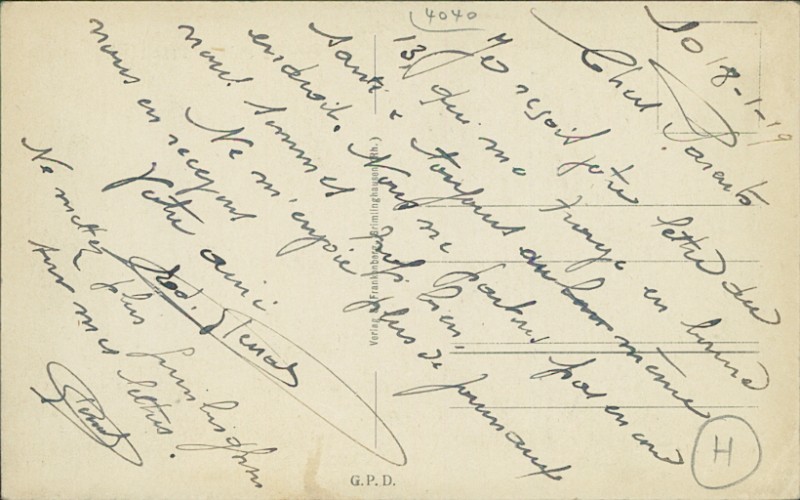 4040
18-1-19
Chers Parents
Je reçoit votre lettre du
13, qui me trouve en bonne
Santé & toujours au même
endroit. Nous ne partons pas encore
nous sommes très bien.
Ne m'envoie plus de journaux
nous en recevons
Votre ami
Ne mettez plus
sur mes lettres.
Verlag Frankenberg, Grimlinghausen (Rh.)
G.P.D.
H